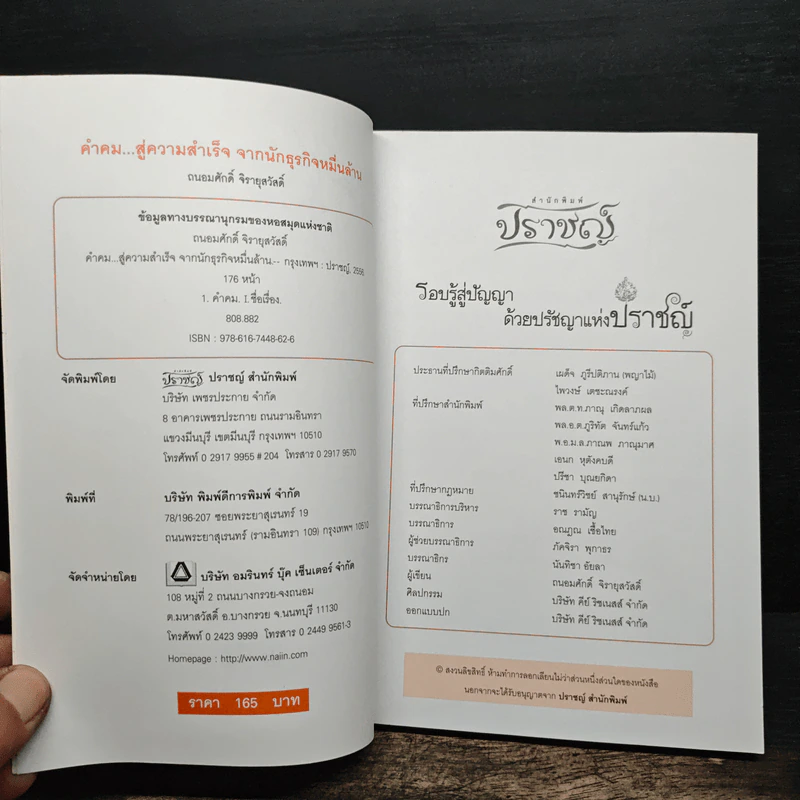 คำคม...สู่ความสำเร็จ จากนักธุรกิจหมื่นล้าน
ถนอมศักดิ์ จิรายุสวัสดิ์
ข้อมูลทางบรรณานุกรมของหอสมุดแห่งชาติ
ถนอมศักดิ์ จิรายุสวัสดิ์
คำคม...สู่ความสำเร็จ จากนักธุรกิจหมื่นล้าน.-- กรุงเทพฯ : ปราชญ์, 2556
176 หน้า
1. คำคม. I.ชื่อเรื่อง.
808.882
ISBN : 978-616-7448-62-6
จัดพิมพ์โดย ปราชญ์ ปราชญ์ สำนักพิมพ์
บริษัท เพชรประกาย จำกัด
8 อาคารเพชรประกาย ถนนรามอินทรา
แขวงมีนบุรี เขตมีนบุรี กรุงเทพฯ 10510
โทรศัพท์ 0 2917 9955 # 204 โทรสาร 0 2917 9570
พิมพ์ที่ บริษัท พิมพ์ดีการพิมพ์ จำกัด
78/196-207 ซอยพระยาสุเรนทร์ 19
ถนนพระยาสุเรนทร์ (รามอินทรา 109) กรุงเทพฯ 10510
จัดจำหน่ายโดย บริษัท อมรินทร์ บุ๊ค เซ็นเตอร์ จำกัด
108 หมู่ที่ 2 ถนนบางกรวย-จงถนอม
ต.มหาสวัสดิ์ อ.บางกรวย จ.นนทบุรี 11130
โทรศัพท์ 0 2423 9999 โทรสาร 0 2449 9561-3
Homepage : http://www.naiin.com
ราคา 165 บาท
สำนักพิมพ์
ปราชญ์
รอบรู้สู่ปัญญา
ด้วยปรัชญาแห่งปราชญ์
ประธานที่ปรึกษากิตติมศักดิ์ เผด็จ ภูรีปติภาน (พญาไม้)
ไพวงษ์ เตชะณรงค์
ที่ปรึกษาสำนักพิมพ์ พล.ต.ท.ภาณุ เกิดลาภผล
พล.อ.ต.ภูริทัต จันทร์แก้ว
พ.อ.ม.ล.ภาณพ ภาณุมาศ
เอนก หุตังคบดี
ปรีชา บุณยกิดา
ที่ปรึกษากฎหมาย ชนินทร์วิชย์ สานุรักษ์ (น.บ.)
บรรณาธิการบริหาร ราช รามัญ
บรรณาธิการ อณฏณ เชื้อไทย
ผู้ช่วยบรรณาธิการ ภัคจิรา พุกาธร
บรรณาธิกร นันทิชา อัยลา
ผู้เขียน ถนอมศักดิ์ จิรายุสวัสดิ์
ศิลปกรรม บริษัท คีย์ ริชเนสส์ จำกัด
ออกแบบปก บริษัท คีย์ ริชเนสส์ จำกัด
© สงวนลิขสิทธิ์ ห้ามทำการลอกเลียนไม่ว่าส่วนหนึ่งส่วนใดของหนังสือ
นอกจากจะได้รับอนุญาตจาก ปราชญ์ สำนักพิมพ์